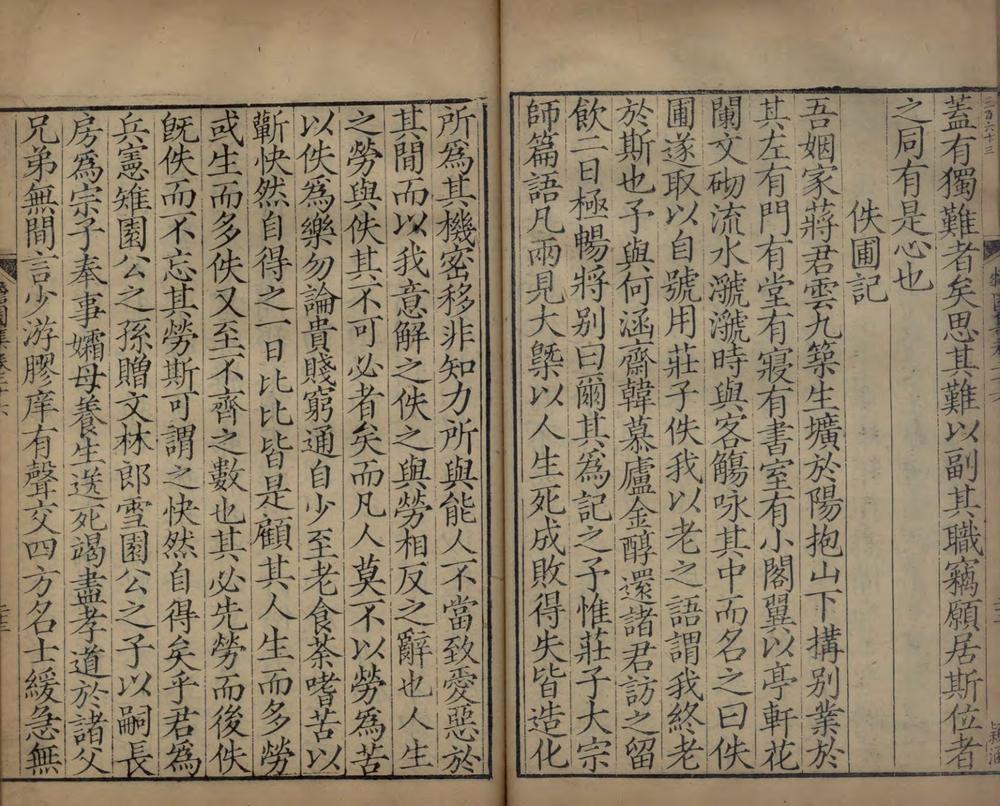 蓋有獨難者矣思其難以副其職竊願居斯位者
之同有是心也
佚圃記
吾姻家蔣君雲九築生壙於陽抱山下搆别業於
其左有門有堂有寢有書室有小閣翼以亭軒花
闌文砌流水㶁㶁時與客觴咏其中而名之曰佚
圃遂取以自號用莊子佚我以老之語謂我終老
於斯也予與何涵齋韓慕廬金醇還諸君訪之留
飲二日極暢將别曰爾其爲記之予惟莊子大宗
師篇語凡兩見大槩以人生死成敗得失皆造化
所爲其機密移非知力所與能人不當致愛惡於
其間而以我意解之佚之與勞相反之辭也人生
之勞與佚其不可必者矣而凡人莫不以勞爲苦
以佚爲樂勿論貴賤窮通自少至老食荼嗜苦以
蘄快然自得之一日比比皆是顧其人生而多勞
或生而多佚又至不齊之數也其必先勞而後佚
旣佚而不忘其勞斯可謂之快然自得矣乎君爲
兵憲雉園公之孫贈文林郎雪園公之子以嗣長
房爲宗子奉事孀母養生送死竭盡孝道於諸父
兄弟無間言少游膠庠有聲交四方名士緩急無